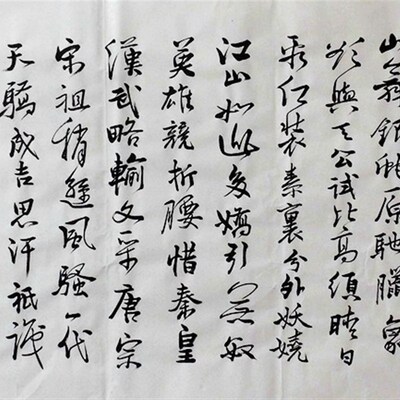 山舞銀蛇原馳臘象
欲與天公試比高須晴日
看紅裝素裹分外妖嬈
江山如此多嬌引無數
英雄競折腰惜秦皇
漢武略輸文采唐宗
宋祖稍遜風騷一代
天驕成吉思汗祗識